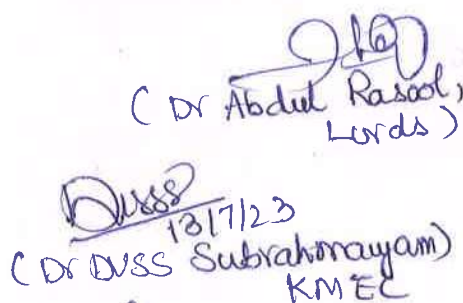 (Dr Abdul Rasool,
Lords)
DVSS
13/7/23
(Dr DVSS Subrahmanyam)
KMEC